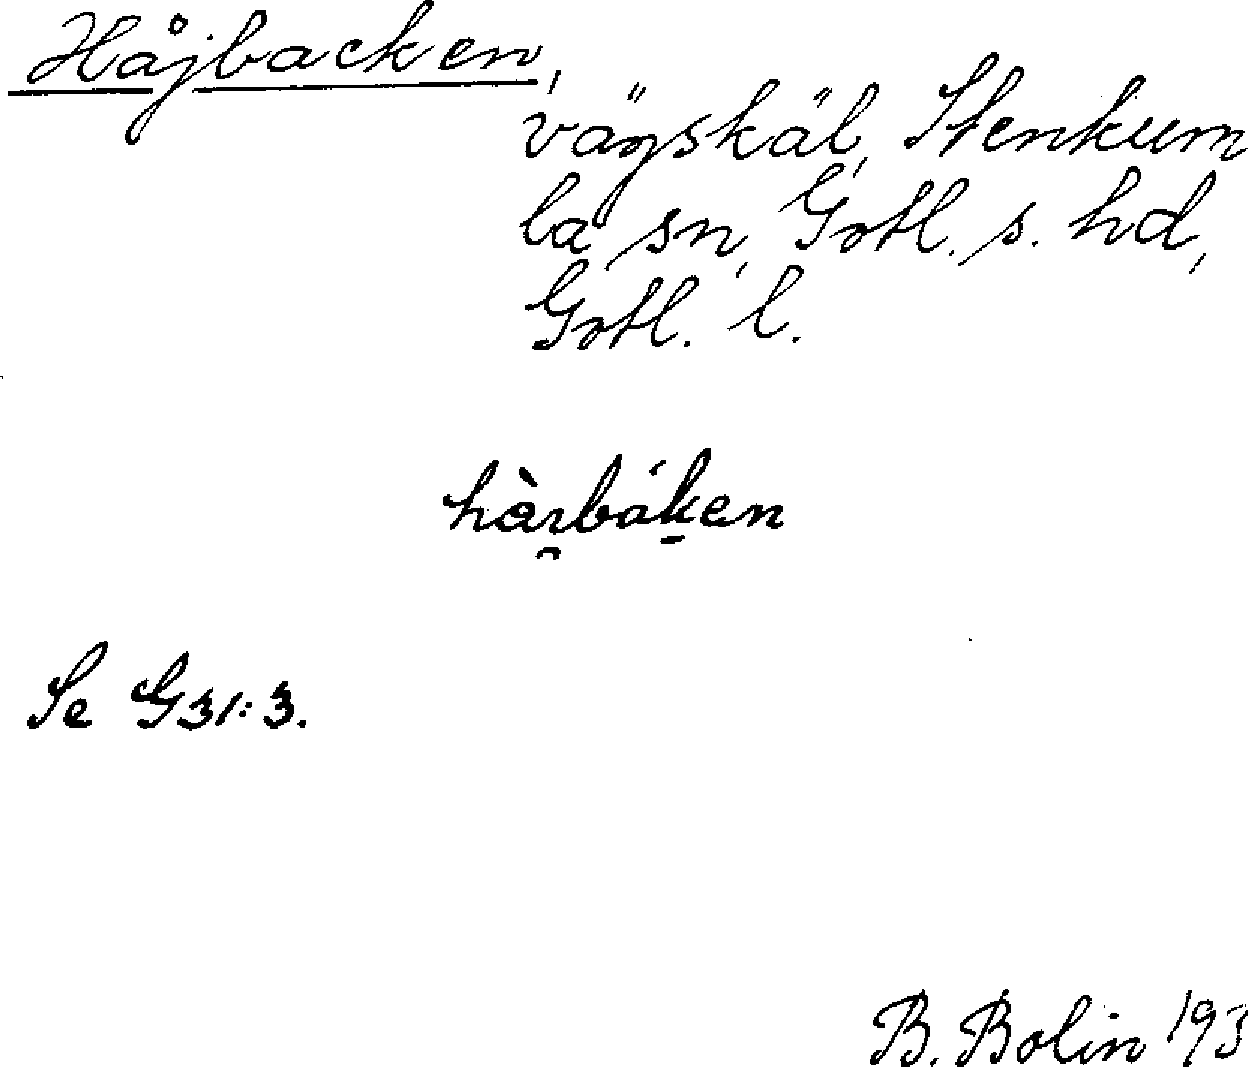 Håjbacken,
vägskäl, Stenkum
la sn, Gotl. s. hd,
Gotl. l.
Se G31:3.
B. Bolin 193